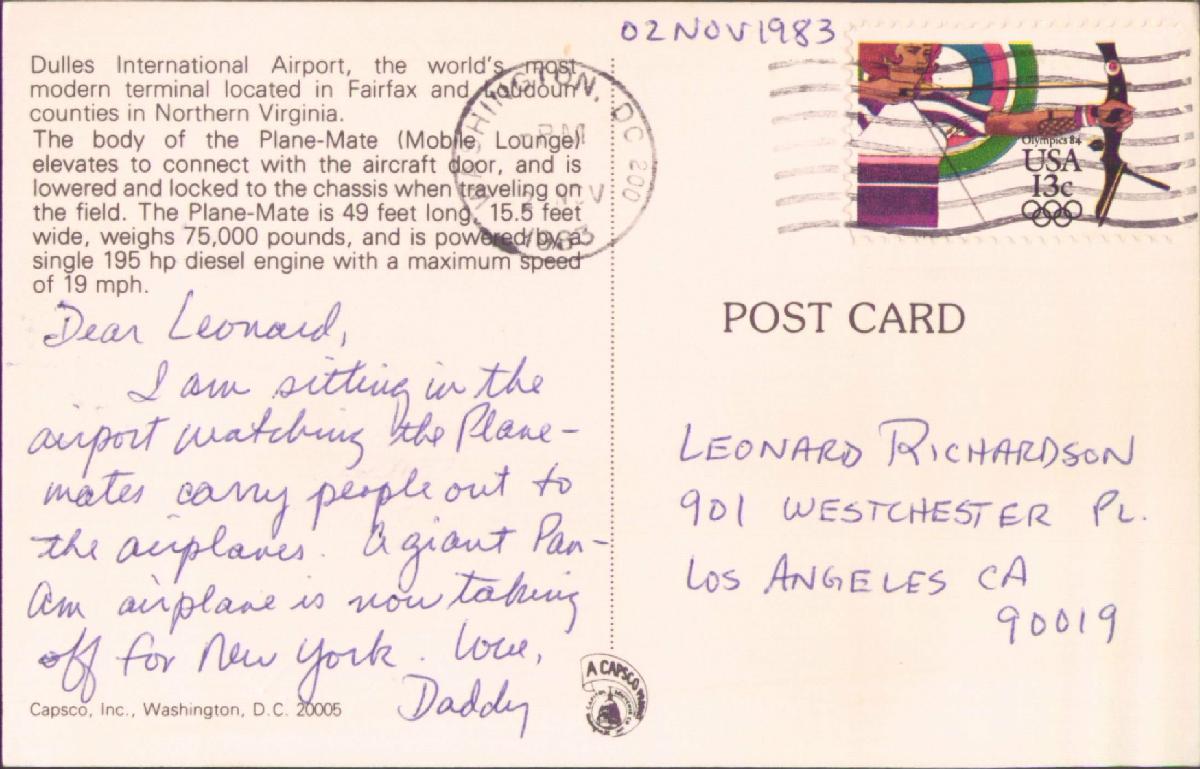 02 NOV 1983
Dulles International Airport, the world's most
modern terminal located in Fairfax and Loudoun
counties in Northern Virginia.
The body of the Plane-Mate (Mobile Lounge)
elevates to connect with the aircraft door, and is
lowered and locked to the chassis when traveling on
the field. The Plane-Mate is 49 feet long, 15.5 feet
wide, weighs 75,000 pounds, and is powered by a
single 195 hp diesel engine with a maximum speed
of 19 mph.
WASHINGTON, DC 200
PM
NOV
1983
Olympics 84
USA
13c
Dear Leonard,
I am sitting in the
airport watching the Plane-
mates carry people out to
the airplanes. A giant Pan-
Am airplane is now taking
off for New York. Love,
Daddy
Capsco, Inc., Washington, D.C. 20005
A CAPSCO
POST CARD
LEONARD RICHARDSON
901 WESTCHESTER PL.
LOS ANGELES CA
90019